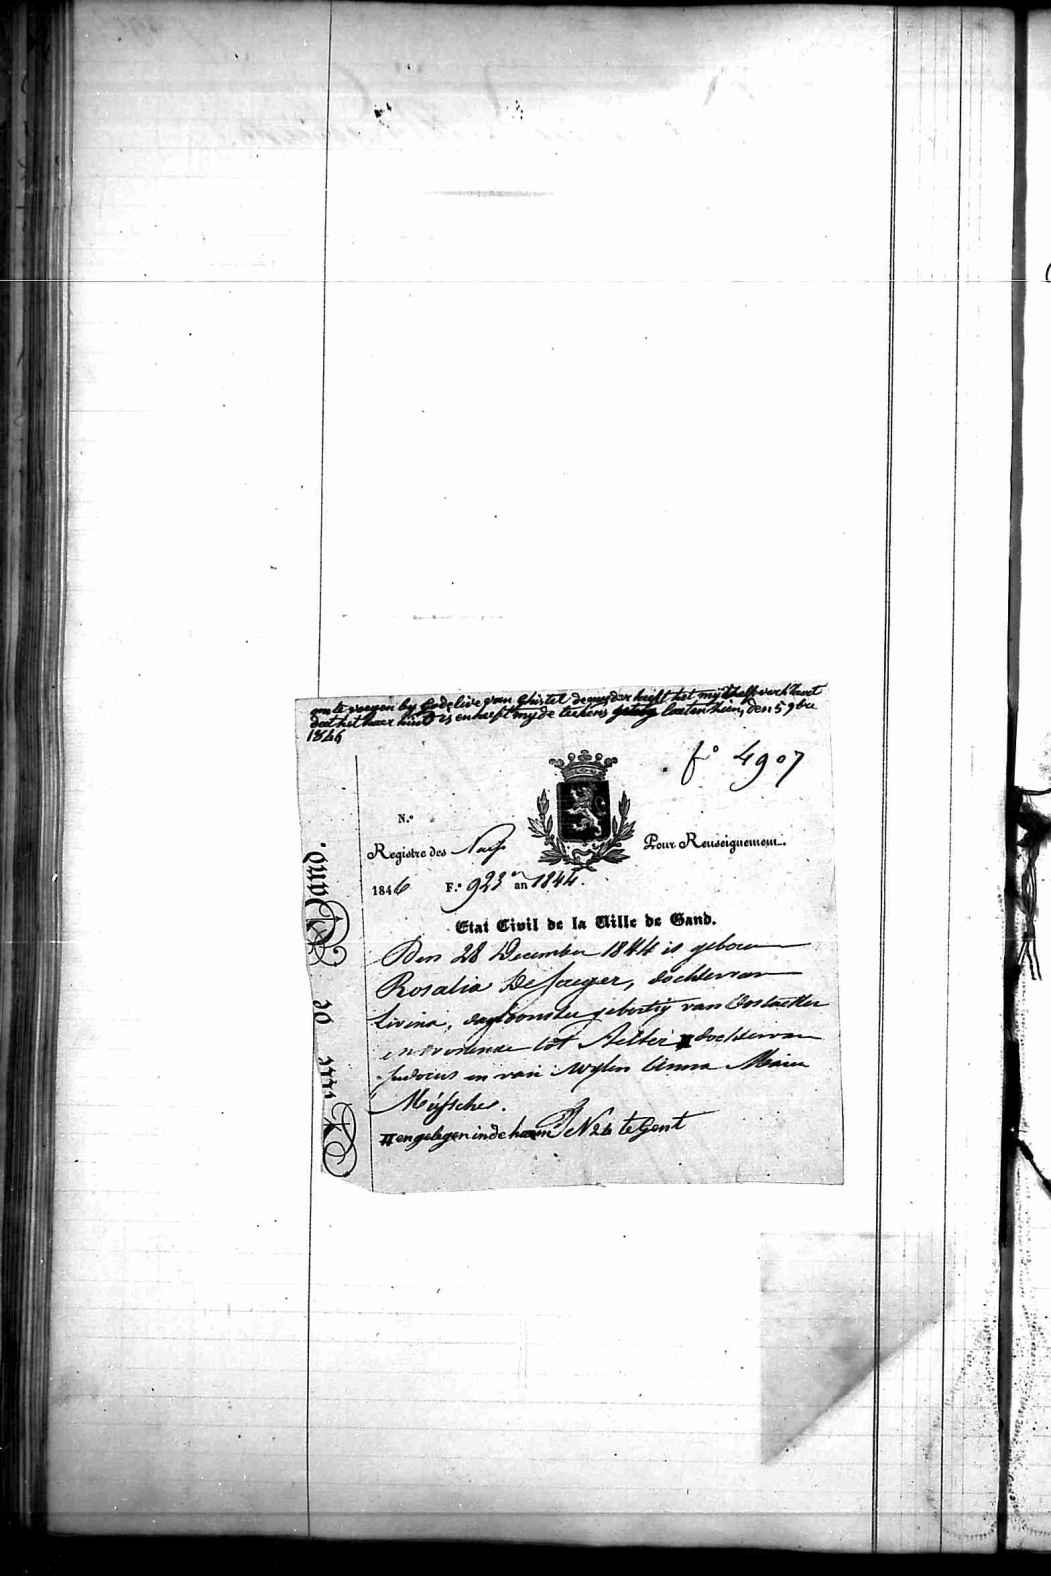 om te voegen by Godelive van Ghistel de moeder heeft het my zelf verklaert
dat het haer kind is en heeft my de teekens laeten zien, den 5 9bre
1846
f° 4907
N.°
Registre des Naiss Pour Renseignement.
1846 F.° 923 an 1844.
Etat Civil de la Ville de Gand.
Den 28 December 1844 is geboren
Rosalia De Jaeger, dochter van
Livina, geboortig van Oostacker
en woonende tot Aelter # dochter van
Judocus en van wylen Anna Maria
# en gelegen in de N 26 te Gent
Ville de Gand.